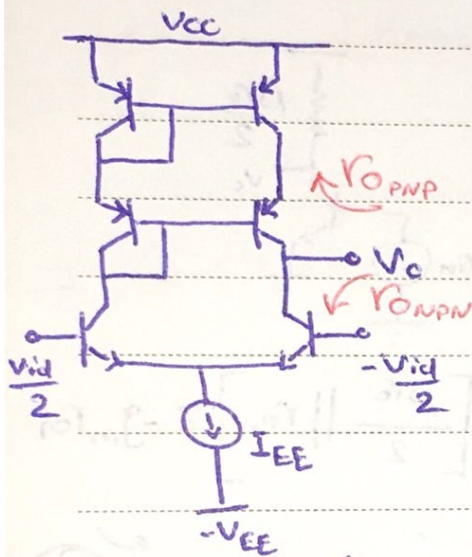 VCC
ro PNP
Vo
ro NPN
Vid/2
-Vid/2
IEE
-VEE